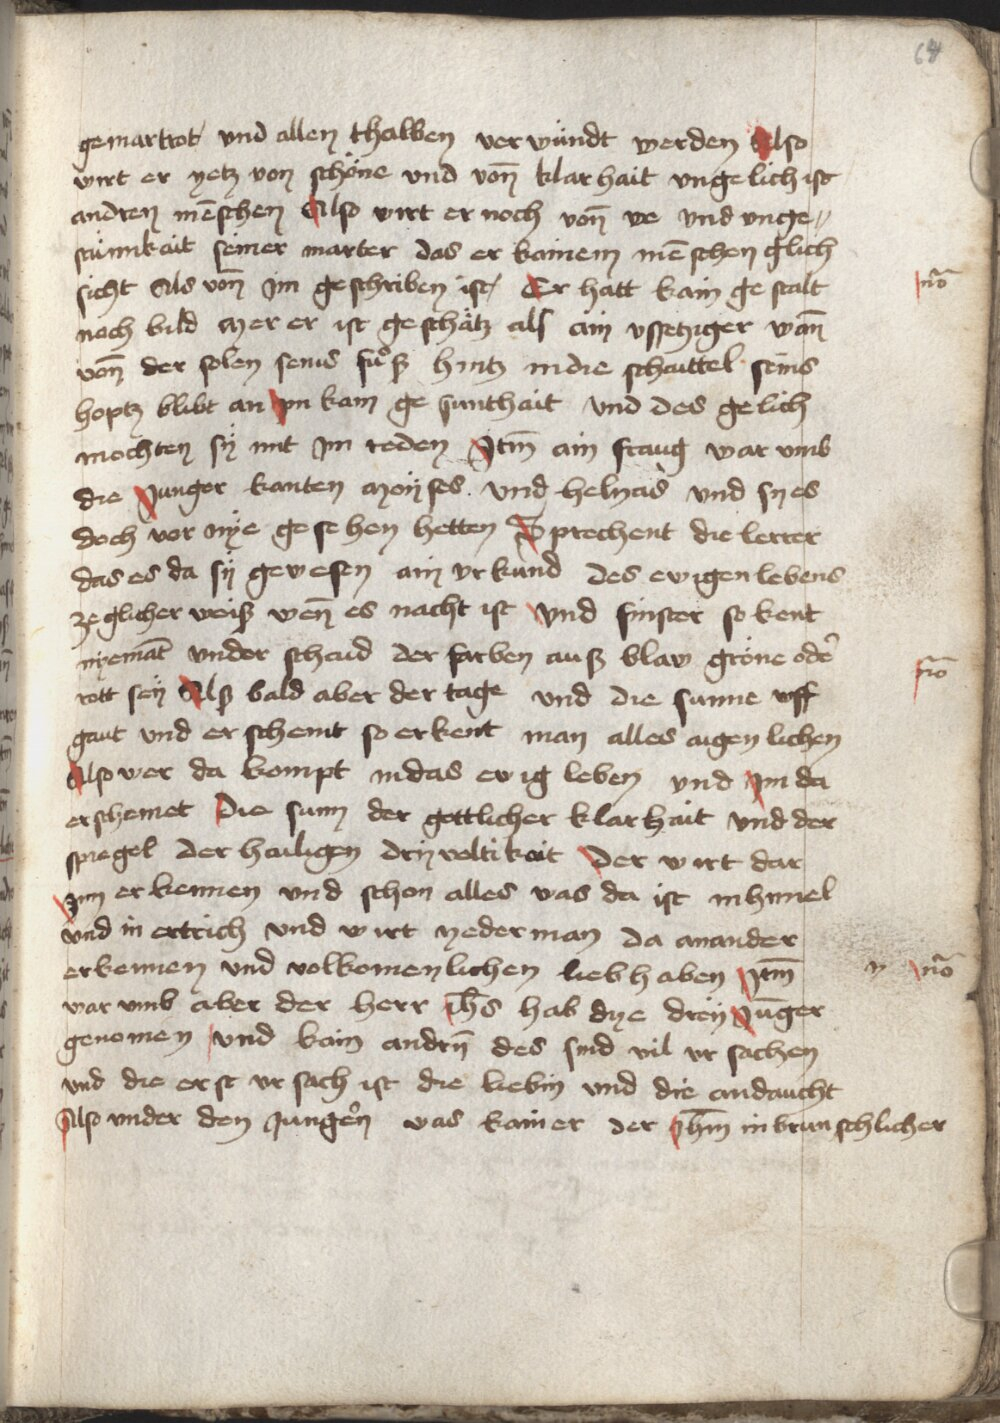 64
gemartrot vnd allen thalben verwündt werden Also
wirt er yetz von schöne vnd von̄ klarhait vngelich ist
andren mēschen Also wirt er noch von̄ we vnd vnge⸗
stümkait seiner marter das er kainem mēschen glich
sicht Als von̄ Im geschriben ist Er hatt kain gestalt
noch bild Mer er ist geschätz als ain vssetziger wan̄
von̄ der solen seins fuͦß hintz in die schaittel seins
hoptz blibt an Im kain gesunthait vnd des gelich
mochten sÿ mit Im reden Itm̄ ain fraug warvmb
die Junger kanten Moÿses vnd helyas vnd sy es
doch vor nÿe gesehen hetten Sprechent die lerrer
das es da sÿ gewesen ain vrkund des ewigen lebens
ze glicher weiß wen̄ es nacht ist vnd finster so kent
nyemāt vnder schaid der farben auß blaw gröne oder
rott seÿ Alß bald aber der tage vnd die sunne vff
gaut vnd erscheint so erkent man alles aigenlichen
Also wer da kompt in das ewig leben vnd Im da
erscheinet Die sunn der gottlicher klarhait vnd der
spiegel der hailigen dryvoltikait Der wirt dar
Inn erkennen vnd schon alles was da ist in himel
vnd in ertrich vnd wirt yederman da ainander
erkennen vnd volkomenlichen liebhaben Itm̄
warvmb aber der herr ih̄s hab dye dreÿ Jūger
genomen vnd kain andrn̄ des sind vil vrsachen
vnd die erst vrsach ist die liebin vnd die andaucht
Also vnder den Jungern was kainer der Ih̄m inbrunschlicher
nō
nō
nō